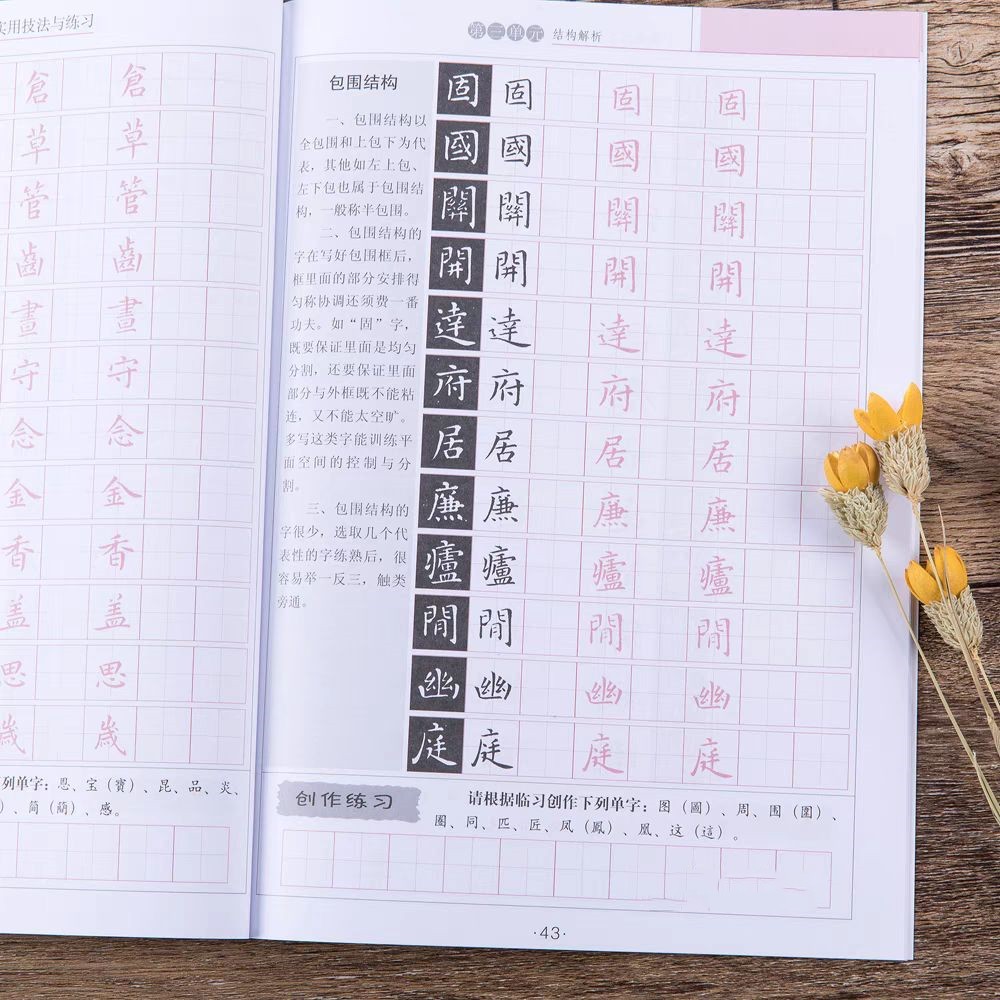 实用技法与练习
倉 倉
草 草
管 管
齒 齒
畫 畫
守 守
念 念
金 金
香 香
盖 盖
思 思
歲 歲
列单字：恩、宝（寶）、昆、品、炎、
）、简（蕑）、感。
第三单元 结构解析
包围结构
一、包围结构以
全包围和上包下为代
表，其他如左上包、
左下包也属于包围结
构，一般称半包围。
二、包围结构的
字在写好包围框后，
框里面的部分安排得
匀称协调还须费一番
功夫。如“固”字，
既要保证里面是均匀
分割，还要保证里面
部分与外框既不能粘
连，又不能太空旷。
多写这类字能训练平
面空间的控制与分
割。
三、包围结构的
字很少，选取几个代
表性的字练熟后，很
容易举一反三，触类
旁通。
固 固 固 固
國 國 國 國
開 開 開 開
達 達 達 達
府 府 府 府
居 居 居 居
廉 廉 廉 廉
癯 癯 癯 癯
閒 閒 閒 閒
幽 幽 幽 幽
庭 庭 庭 庭
创作练习
请根据临习创作下列单字：图（圖）、周、围（圍）、
圈、同、匹、匠、凤（鳳）、凰、这（這）。
·43·